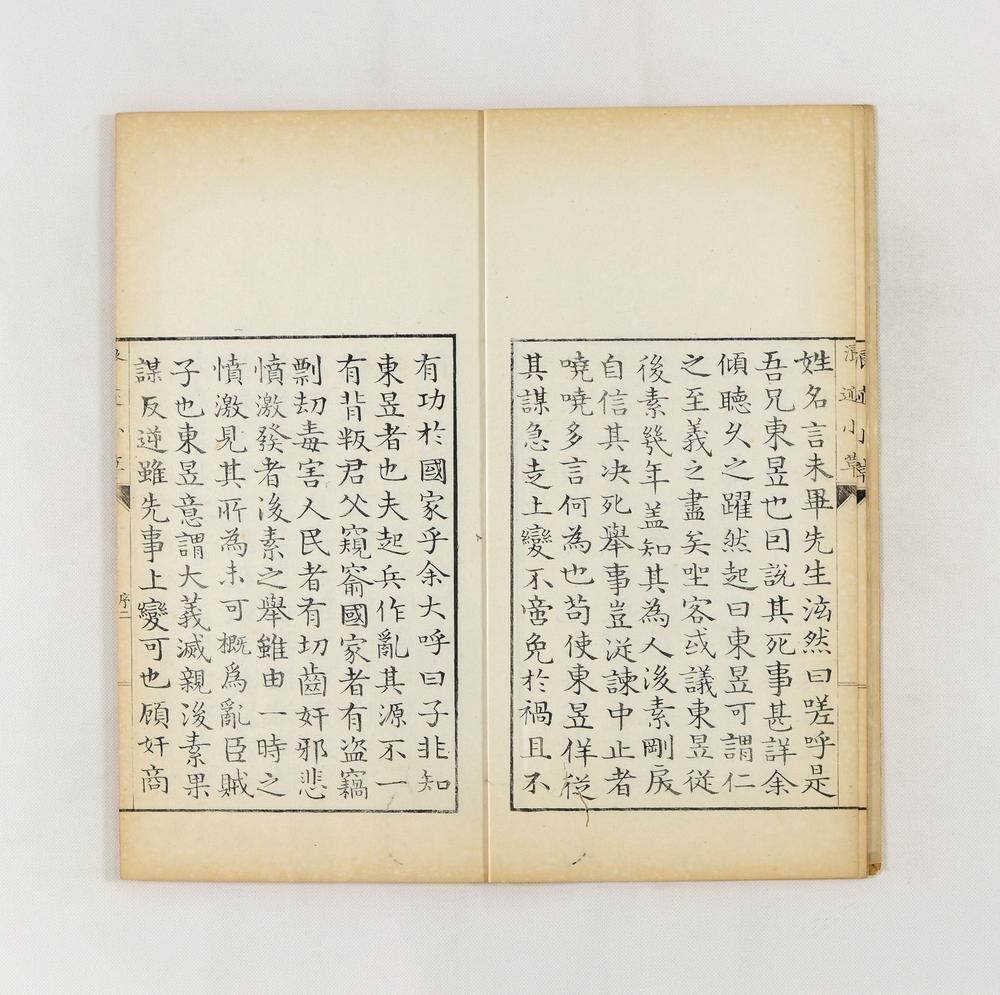 姓名言未畢先生泫然曰嗟呼是
吾兄東昱也曰說其死事甚詳余
傾聽久之躍然起曰東昱可謂仁
之至義之盡矣坐客或議東昱從
後素幾年盖知其為人後素剛戾
自信其决死舉事豈從諫中止者
嘵嘵多言何為也苟使東昱佯從
其謀急走上變不啻免於禍且不
有功於國家乎余大呼曰子非知
東昱者也夫起兵作亂其源不一
有背叛君父窺窬國家者有盗竊
剽刼毒害人民者有切齒奸邪悲
憤激發者後素之舉雖由一時之
憤激見其所為未可概為亂臣賊
子也東昱意謂大義滅親後素果
謀反逆雖先事上變可也顧奸商
序二